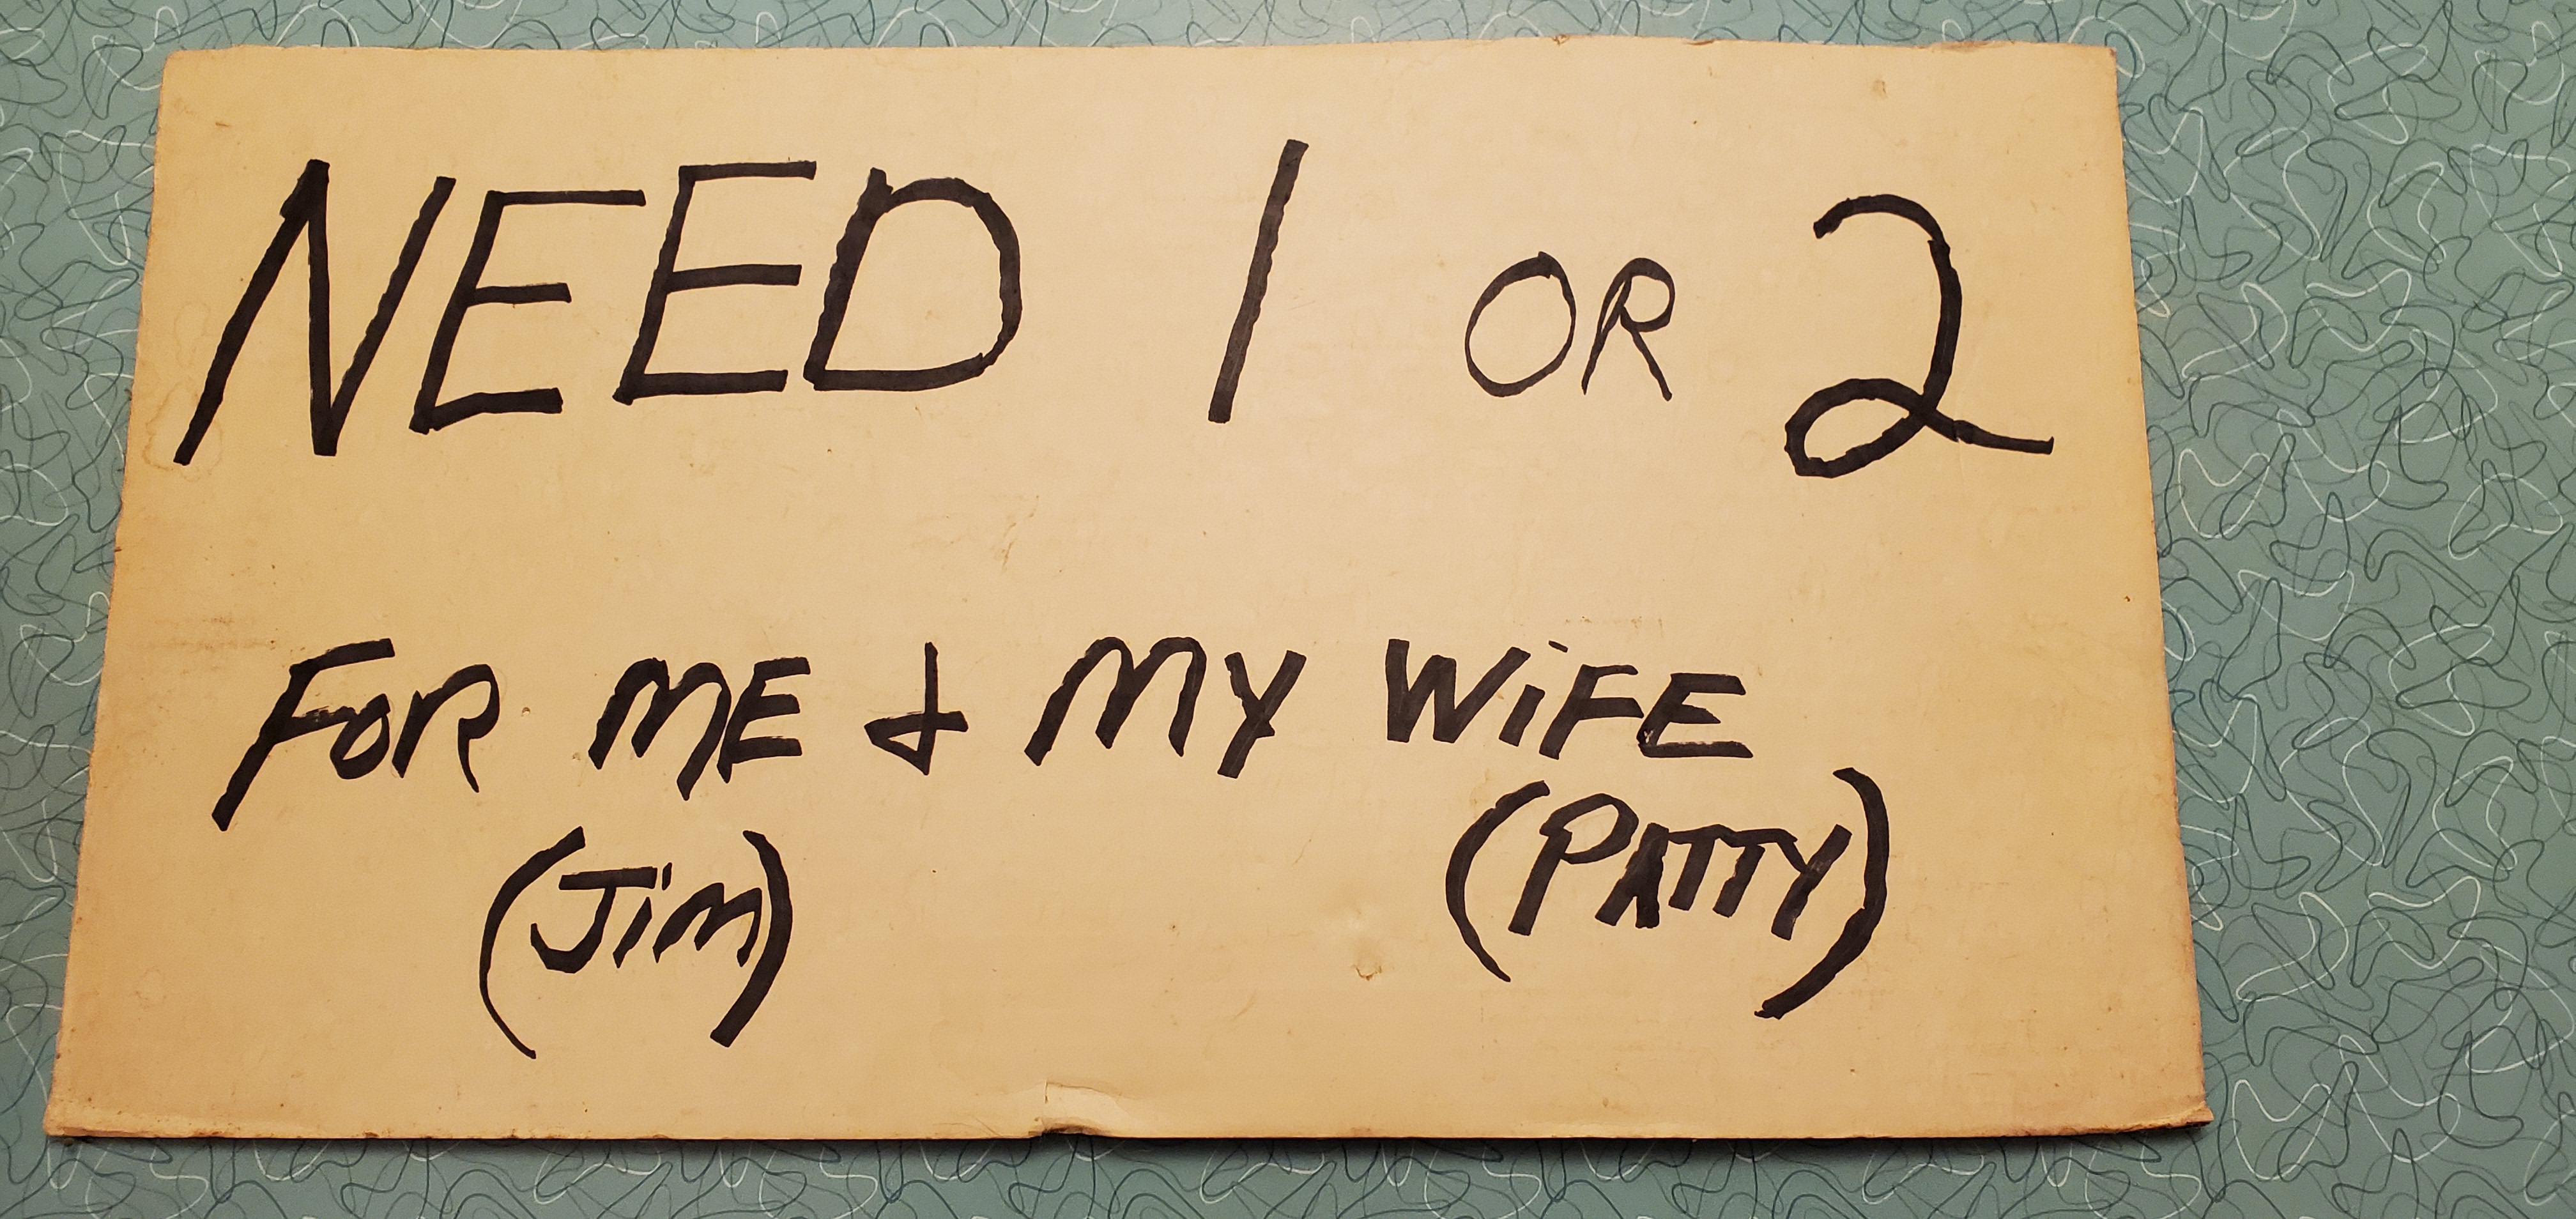 NEED 1 OR 2
FOR ME & MY WiFE
(Jim) (PATTY)